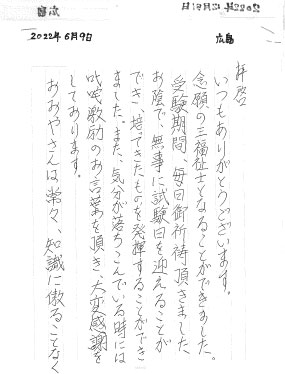 2022年6月9日
広島
拝啓
いつもありがとうございます。
念願の三福祉士となることができました。
受験期間、毎日御祈祷頂きました
お陰で、無事に試験日を迎えることが
でき、培ってきたものを発揮することができ
ました。また、気分が落ちこんでいる時には
叱咤激励のお言葉を頂き、大変感謝を
しております。
おおやさんは常々、知識に傲ることなく